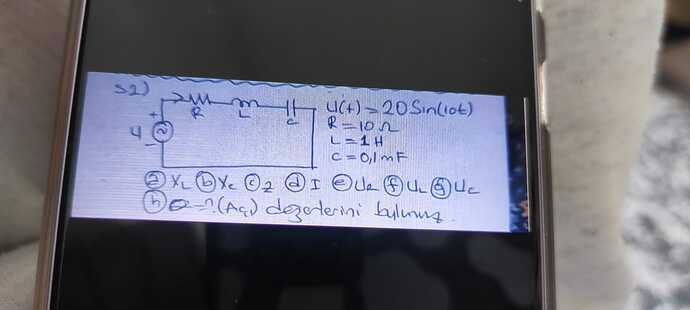 S2)
U(t) = 20 Sin(10t)
R = 10 Ω
L = 1 H
C = 0,1 mF
+
U
-
R L C
ⓐ XL ⓑ Xc ⓒ Z ⓓ I ⓔ UR ⓕ UL ⓖ Uc
ⓗ θ = ? (Açı) değerlerini bulunuz.